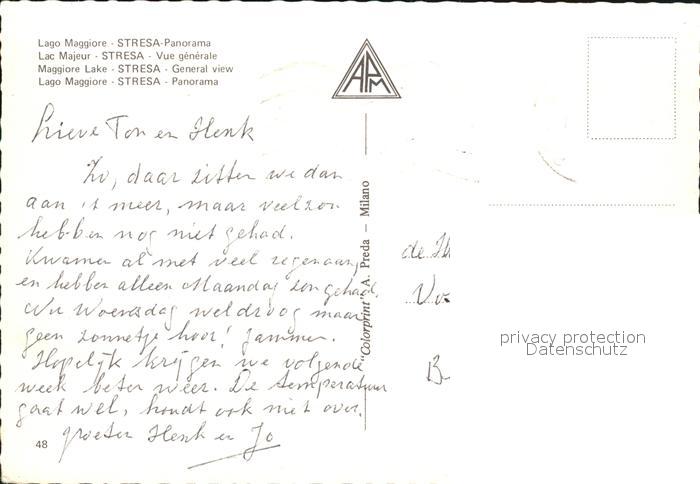 Lago Maggiore - STRESA-Panorama
Lac Majeur - STRESA - Vue générale
Maggiore Lake - STRESA - General view
Lago Maggiore - STRESA - Panorama
APM
Lieve Ton en Henk
Zo, daar zitten we dan
aan 't meer, maar veel zon
hebben nog niet gehad.
Kwamen al met veel regen aan,
en hebben alleen Maandag zon gehad.
Nu Woensdag wel droog maar
geen zonnetje hoor! Jammer.
Hopelijk krijgen we volgende
week beter weer. De temperatuur
gaat wel, houdt ook niet over.
groeten Henk en Jo
48
"Colorprint" A. Preda - Milano
de
B
privacy protection
Datenschutz